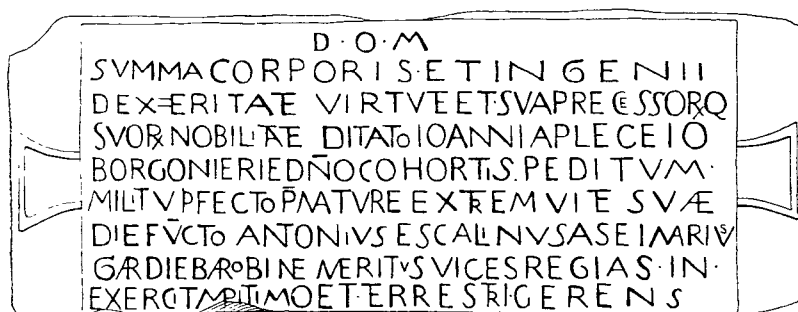 D·O·M
SVMMA CORPORIS·ET INGENII
DEXTERITATE VIRTVTE ET·SVA PRECESSORQ
SVOR NOBILITATE DITATO IOANNI A PLECEIO
BORGONIERIE DÑO COHORTIS·PEDITVM·
MILITV PFECTO P̄MATVRE EXTREM VITE SVÆ
DIE FV̄CTO ANTONIVS ESCALINVS ASEIMARIVS
GARDIE BARO BINE MERITVS VICES REGIAS·IN·
EXERCIT MRITIMO ET TERRESTRI·GERENS